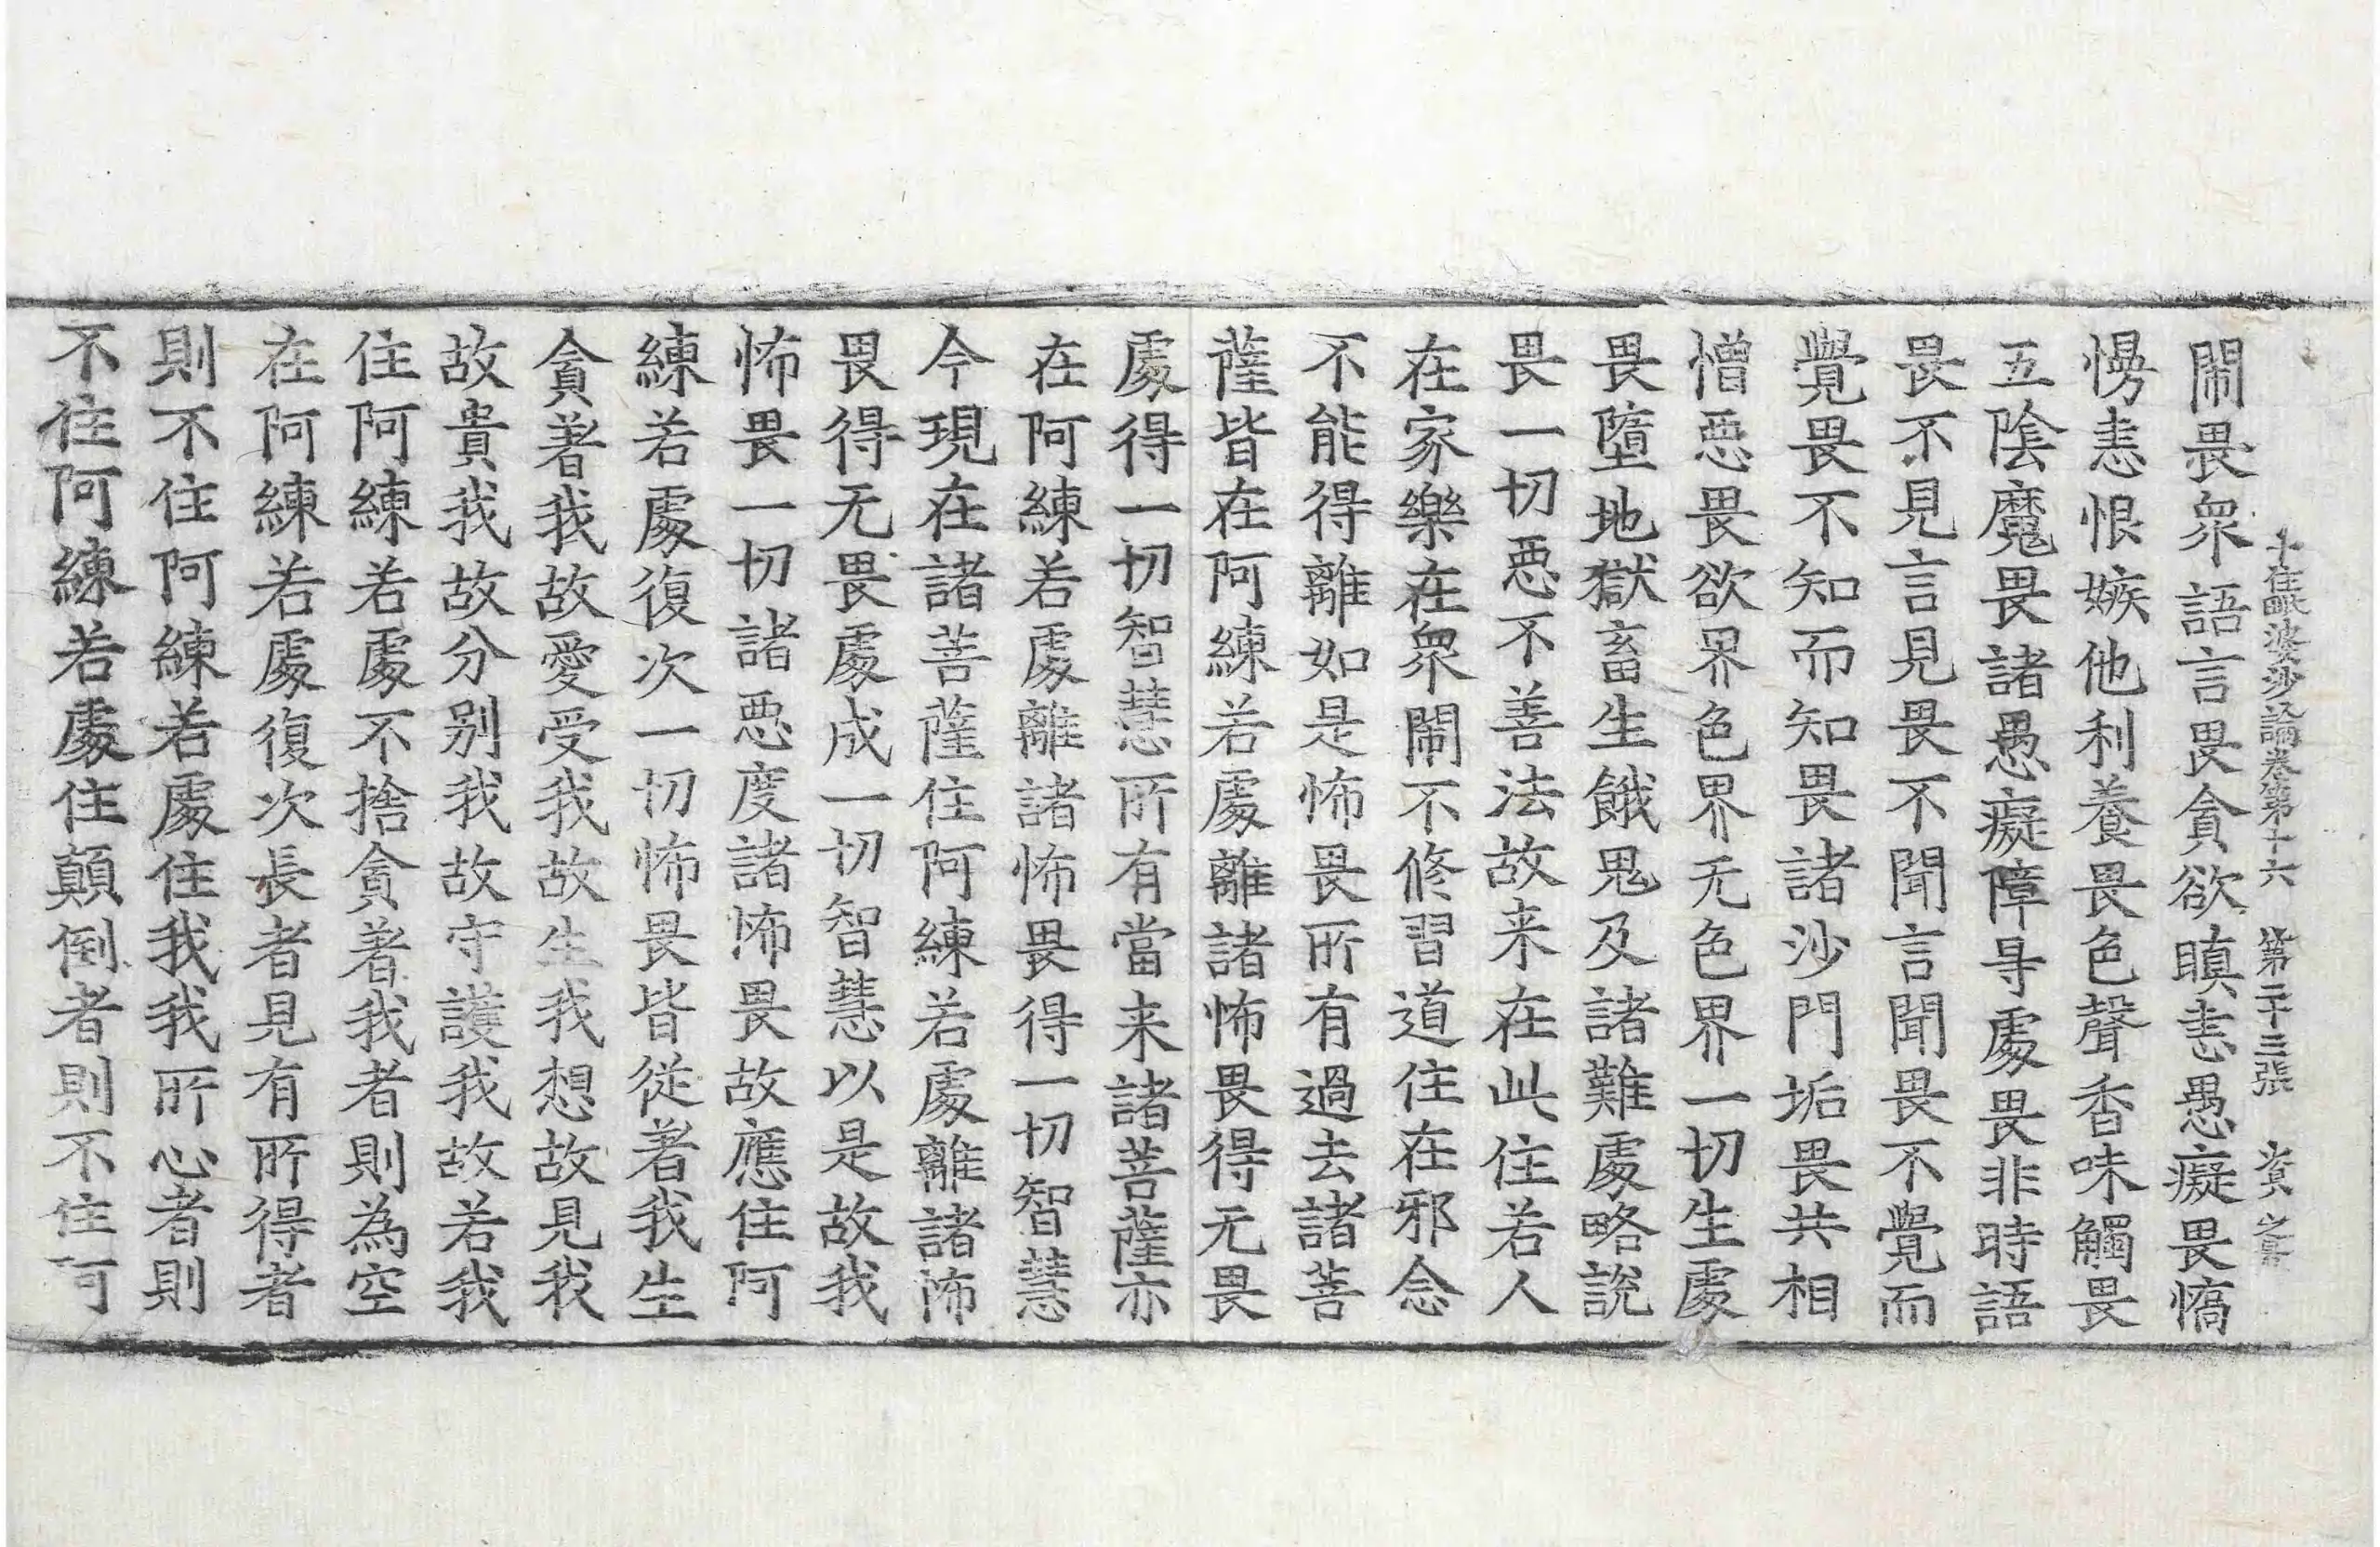 十住毗婆沙論卷第十六　第二十三張　資
閙畏衆語言畏貪欲瞋恚愚癡畏憍
慢恚恨嫉他利養畏色聲香味觸畏
五陰魔畏諸愚癡障㝵處畏非時語
畏不見言見畏不聞言聞畏不覺而
覺畏不知而知畏諸沙門垢畏共相
憎惡畏欲界色界无色界一切生處
畏墮地獄畜生餓鬼及諸難處略說
畏一切惡不善法故来在此住若人
在家樂在衆閙不修習道住在邪念
不能得離如是怖畏所有過去諸菩
薩皆在阿練若處離諸怖畏得无畏
處得一切智慧所有當来諸菩薩亦
在阿練若處離諸怖畏得一切智慧
今現在諸菩薩住阿練若處離諸怖
畏得无畏處成一切智慧以是故我
怖畏一切諸惡度諸怖畏故應住阿
練若處復次一切怖畏皆從著我生
貪著我故愛受我故生我想故見我
故貴我故分別我故守護我故若我
住阿練若處不捨貪著我者則為空
在阿練若處復次長者見有所得者
則不住阿練若處住我我所心者則
不住阿練若處住顛倒者則不住阿